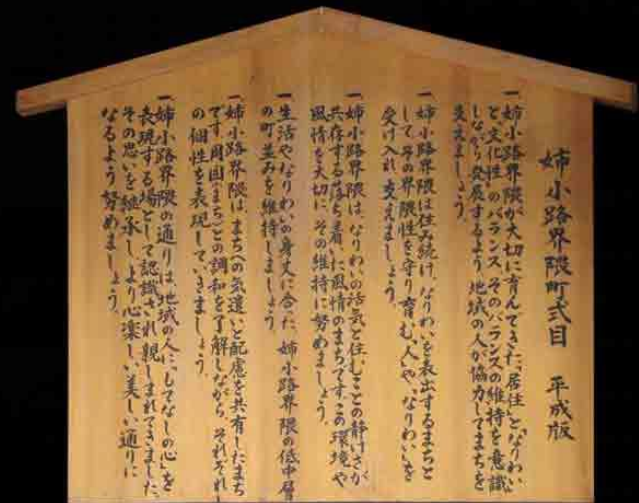 姉小路界隈町式目　平成版
一、姉小路界隈が大切に育んできた、「居住」と「なりわい」
と「文化性」のバランス、そのバランスの維持を意識
しながら発展するよう、地域の人が協力してまちを
支えましょう。
一、姉小路界隈は住み続け、なりわいを表出するまちと
して、その界隈性を守り育む、「人」や、「なりわい」を
受け入れ、支えましょう。
一、姉小路界隈は、なりわいの活気と住むことの静けさが
共存する落ち着いた風情のまちです。この環境や
風情を大切に、その維持に努めましょう。
一、生活やなりわいの身丈に合った、姉小路界隈の低中層
の町並みを維持しましょう。
一、姉小路界隈は、まちへの気遣いと配慮を共有したまち
です。周囲（まち）との調和を了解しながら、それぞれ
の個性を表現していきましょう。
一、姉小路界隈の通りは、地域の人に、「もてなしの心」を
表現する場として認識され、親しまれてきました。
その思いを継承し、より心楽しい、美しい通りに
なるよう努めましょう。